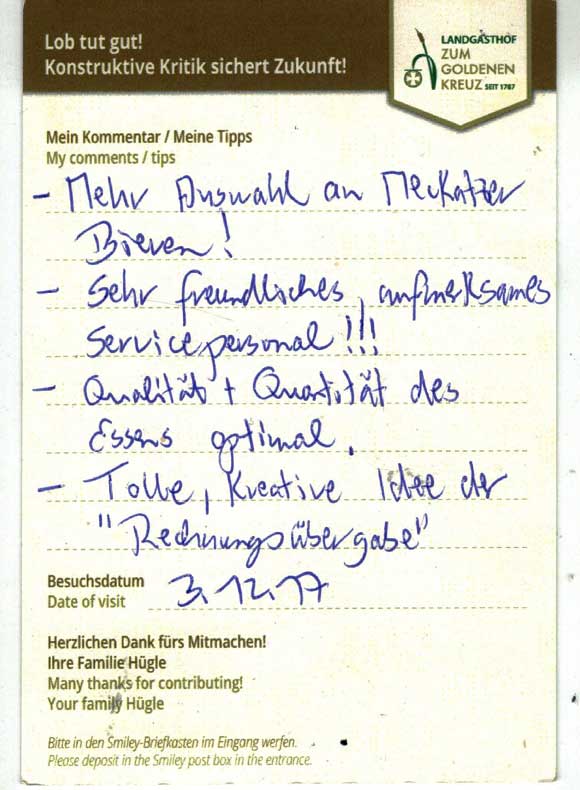 Lob tut gut!
Konstruktive Kritik sichert Zukunft!
LANDGASTHOF
ZUM
GOLDENEN
KREUZ SEIT 1767
Mein Kommentar / Meine Tipps
My comments / tips
- Mehr Auswahl an Meckatzer
Bieren!
- Sehr freundliches, aufmerksames
Servicepersonal!!!
- Qualität + Quantität des
Essens optimal.
- Tolle, kreative Idee der
"Rechnungsübergabe"
Besuchsdatum
Date of visit 3.12.17
Herzlichen Dank fürs Mitmachen!
Ihre Familie Hügle
Many thanks for contributing!
Your family Hügle
Bitte in den Smiley-Briefkasten im Eingang werfen.
Please deposit in the Smiley post box in the entrance.